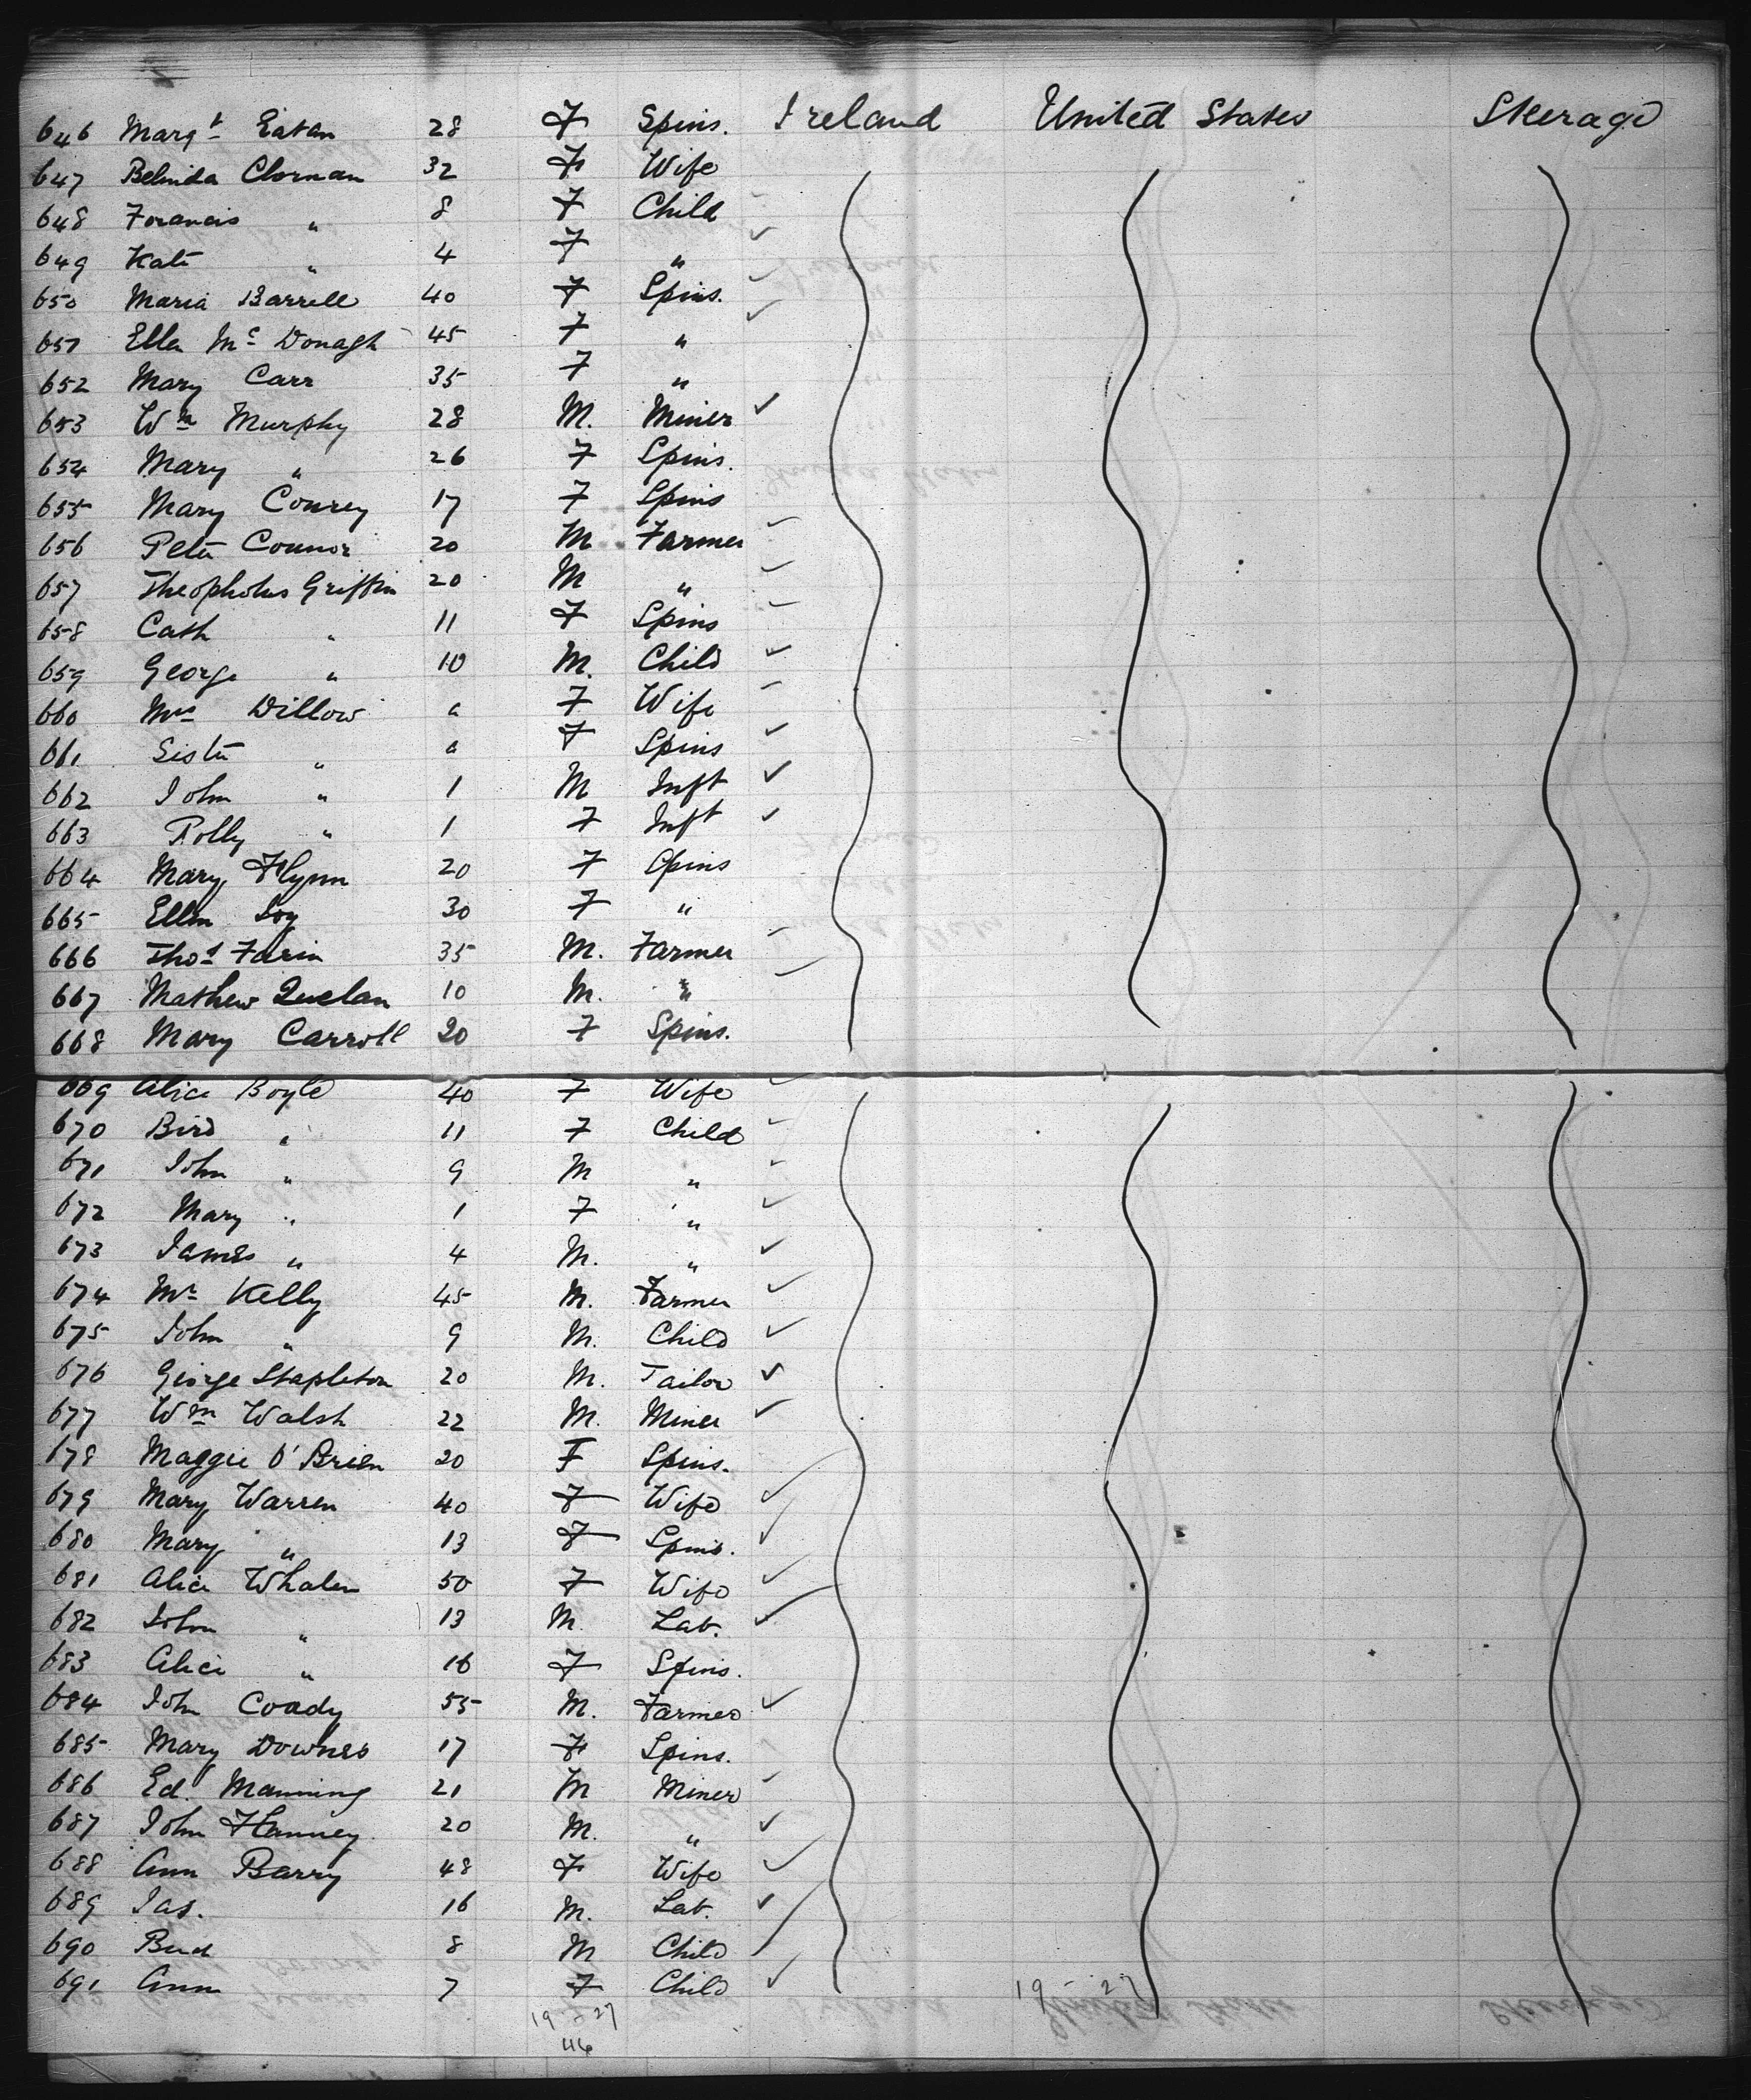 646 Margt Eatan 28 F Spins. Ireland United States Steerage
647 Belinda Clornan 32 F Wife
648 Francis " 8 F Child
649 Kate " 4 F "
650 Maria Barrell 40 F Spins.
651 Ellen Mc Donagh 45 F "
652 Mary Carr 35 F "
653 Wm Murphy 28 M. Miner
654 Mary " 26 F Spins.
655 Mary Conrey 17 F Spins
656 Peter Connor 20 M Farmer
657 Theopholus Griffin 20 M "
658 Cath " 11 F Spins
659 George " 10 M. Child
660 Mrs Dillow a F Wife
661 Sister " a F Spins
662 John " 1 M Inft
663 Polly " 1 F Inft
664 Mary Flynn 20 F Spins
665 Ellen 30 F "
666 Thos 35 M. Farmer
667 Mathew Quelan 10 M. "
668 Mary Carroll 20 F Spins.
669 Alice Boyle 40 F Wife
670 Bird " 11 F Child
671 John " 9 M "
672 Mary " 1 F "
673 James " 4 M. "
674 Mr Kelly 45 M. Farmer
675 John " 9 M. Child
676 George Stapleton 20 M. Tailor
677 Wm Walsh 22 M. Miner
678 Maggie O'Brien 20 F Spins.
679 Mary Warren 40 F Wife
680 Mary " 13 F Spins.
681 Alice Whalen 50 F Wife
682 John " 13 M. Lab.
683 Alice " 16 F Spins.
684 John Coady 55 M. Farmer
685 Mary Downes 17 F Spins.
686 Ed. Manning 21 M Miner
687 John Hanney 20 M. "
688 Ann Barry 48 F Wife
689 Jas. 16 M. Lab.
690 8 M Child
691 Ann 7 F Child
19 - 27
19 - 27
46